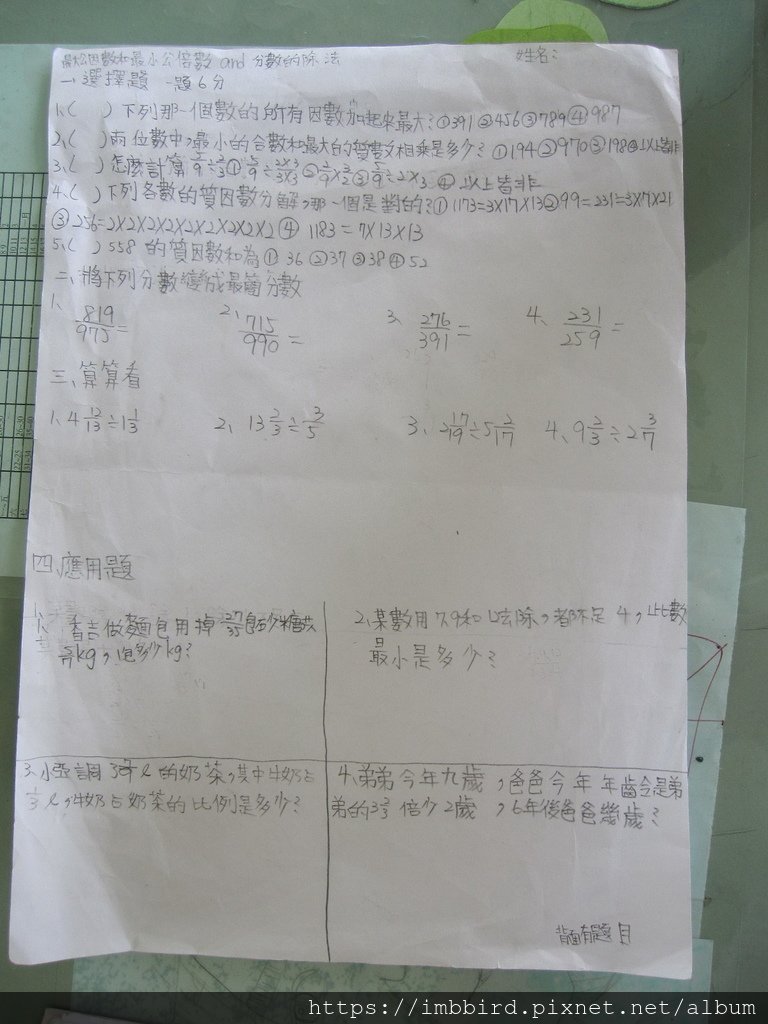 最大公因數和最小公倍數 and 分數的除法 姓名:
一、選擇題 一題6分
1、( )下列那一個數的所有因數加起來最大?①391②456③789④987
2、( )兩位數中,最小的合數和最大的質數相乘是多少?①194②970③198④以上皆非
3、( )怎麼計算 ④以上皆非
4、( )下列各數的質因數分解,那一個是對的?①1173=3×17×13②99=231=3×7×21
③256=2×2×2×2×2×2×2×2④ 1183=7×13×13
5、( )558的質因數和為①36②37③38④52
二、將下列分數變成最簡分數
1、819/975= 2、715/990= 3、276/391= 4、231/259=
三、算算看
1、4 12/13÷1 1/3 2、13 2/3÷3/5 3、2 17/19÷5 2/17 4、9 2/3÷2 3/7
四、應用題
1、香吉做麵包用掉27/35包砂糖共
kg,1包多少kg?
2、某數用 去除,都不足4,此數
最小是多少?
3、小亞調 ℓ的奶茶,其中牛奶占
1/3ℓ,牛奶占奶茶的比例是多少?
4、弟弟今年九歲,爸爸今年年齡是弟
弟的3 2/3倍少2歲,6年後爸爸幾歲?
背面有題目
https://imbbird.pixnet.net/album